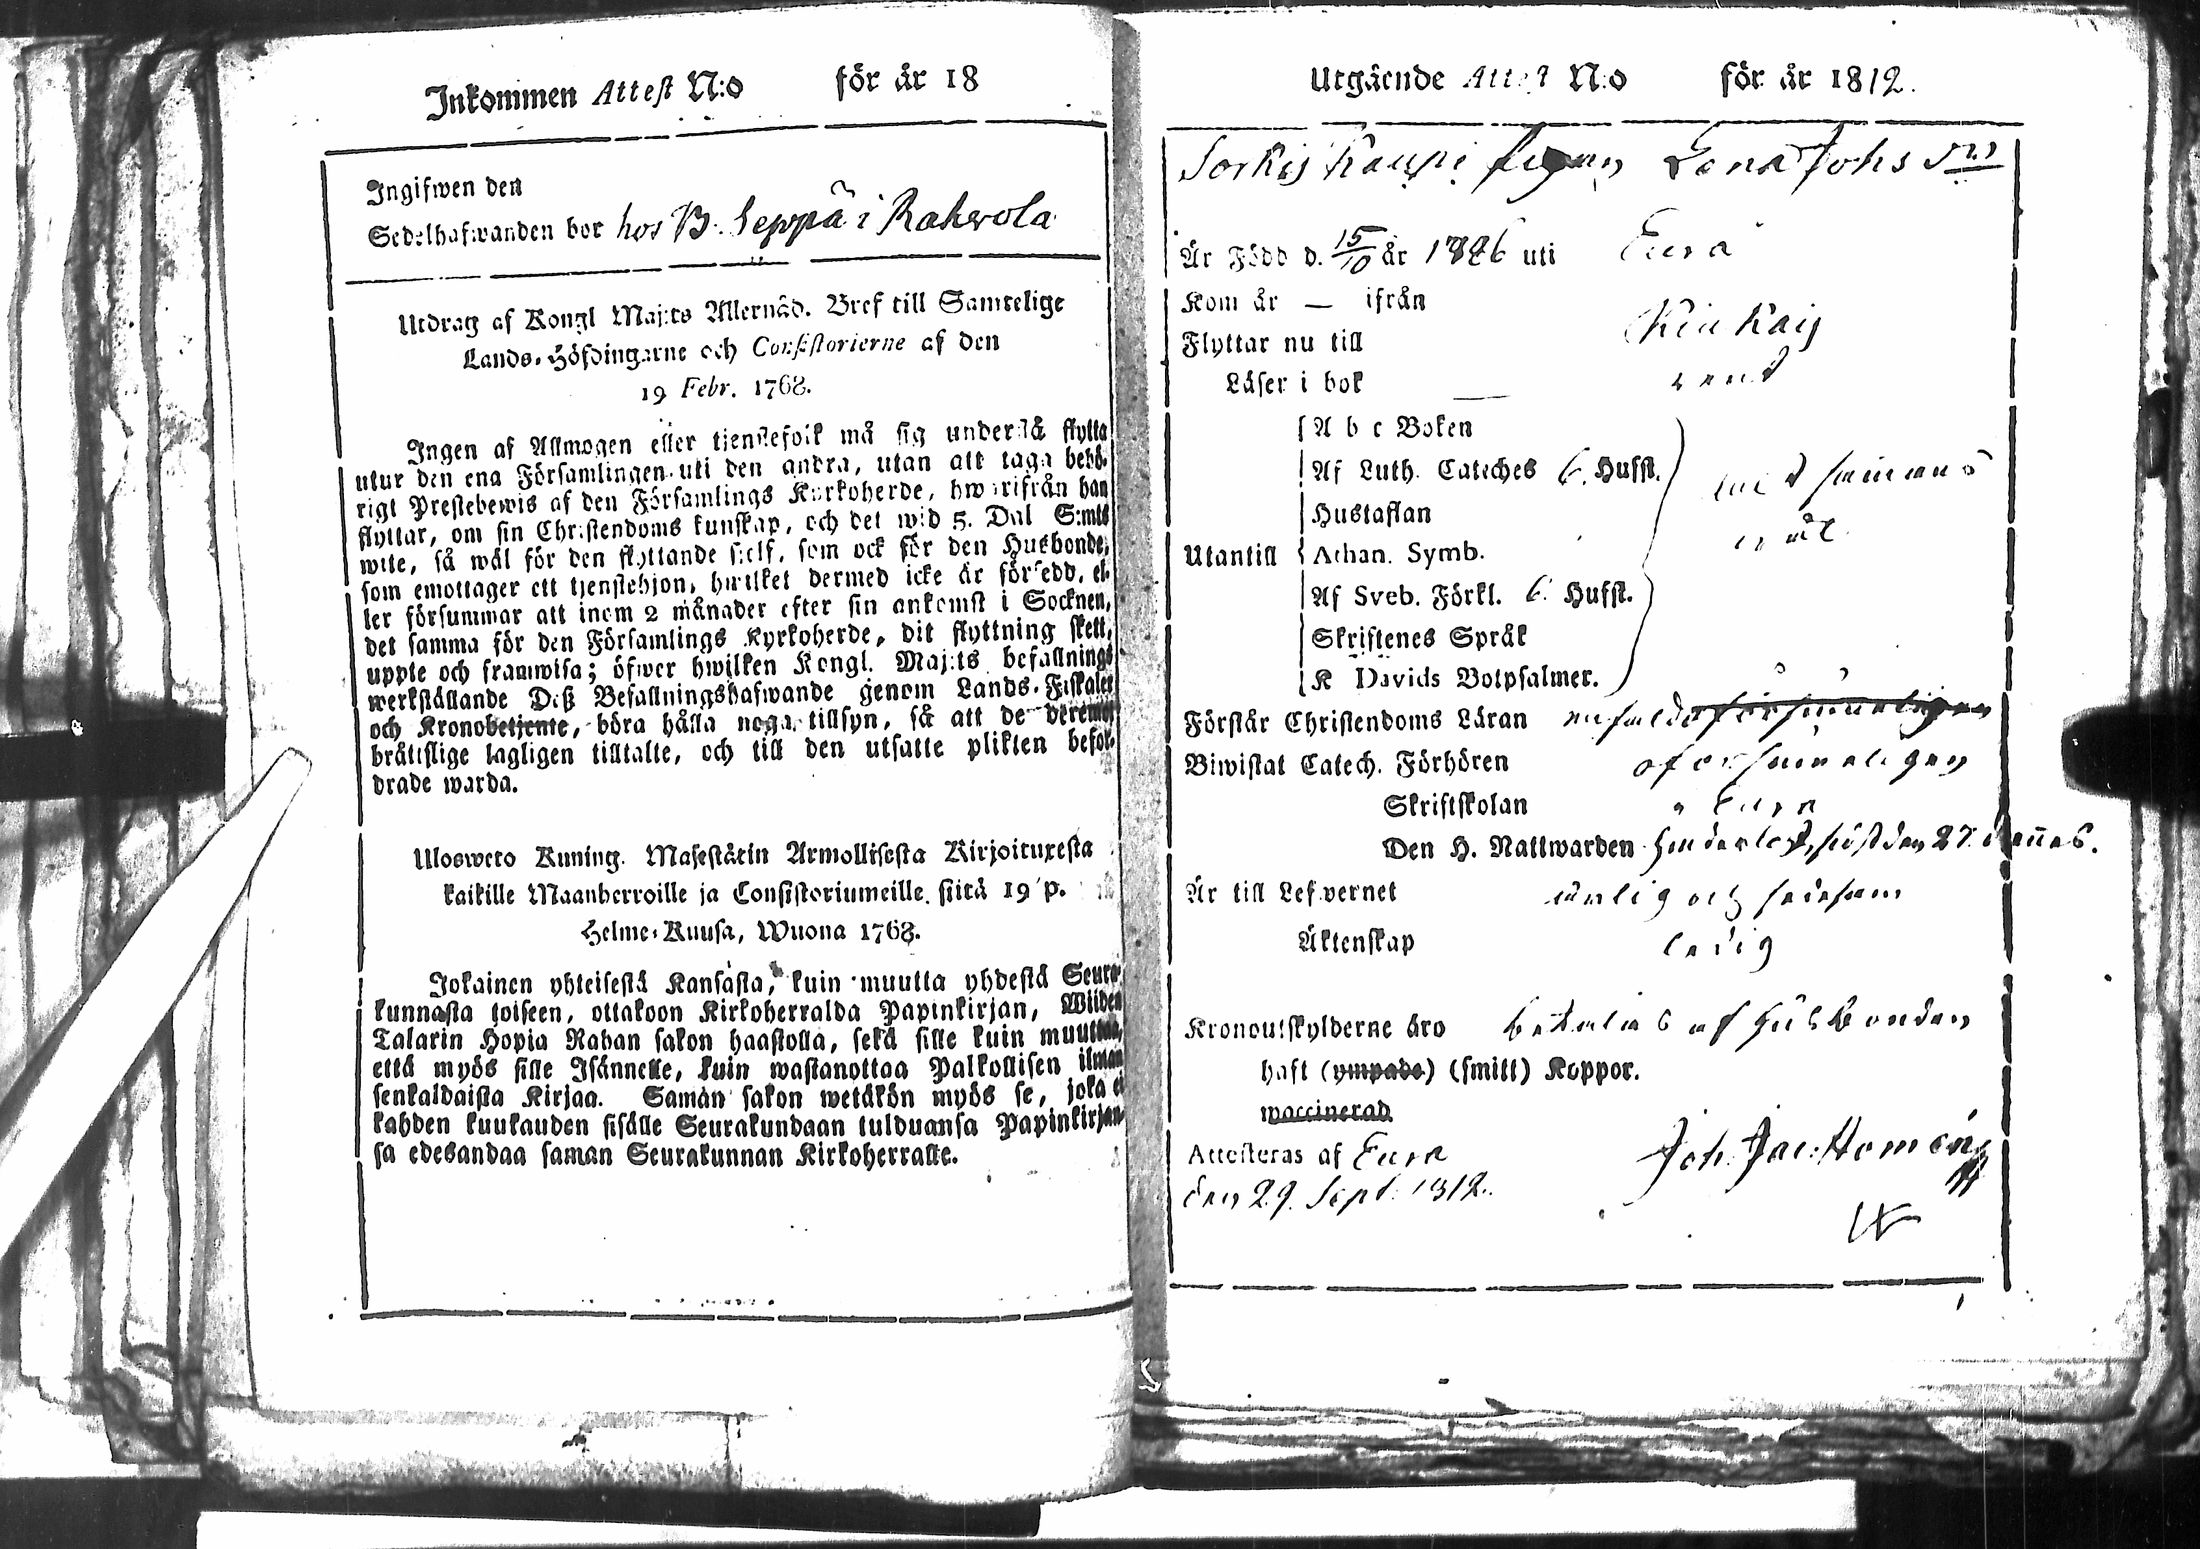 Inkommen Attest N:o för år 18
Ingifwen den
Sedelhafwanden bor hos B. Seppä i Rahwola
Utdrag af Kongl Maj:ts Allernåd. Bref till Samtelige
Lands-Höfdingarne och Consistorierne af den
19 Febr. 1768.
Ingen af Allmogen eller tjenstefolk må sig understå flytta
utur den ena Församlingen uti den andra, utan att taga behö-
rigt Prestebewis af den Församlings Kyrkoherde, hwarifrån han
flyttar, om sin Christendoms kunskap, och det wid 5. Dal S:mts
wite, så wäl för den flyttande sjelf, som ock för den Husbonde,
som emottager ett tjenstehjon, hwilket dermed icke är försedd, el-
ler försummar att inom 2 månader efter sin ankomst i Socknen,
det samma för den Församlings Kyrkoherde, dit flyttning skett,
uppte och framwisa; öfwer hwilken Kongl. Maj:ts befallnings
werkställande Deß Befallningshafwande genom Lands-Fiskaler
och Kronobetjente, böra hålla noga tillsyn, så att de deremot
bråttslige lagligen tilltalte, och till den utsatte plikten befor-
drade warda.
Ulosweto Kuning. Majestätin Armollisesta Kirjoituxesta
kaikille Maanherroille ja Consistoriumeille siitä 19 p.
Helme-Kuusa, Wuona 1768.
Jokainen yhteisestä Kansasta, kuin muutta yhdestä Seura-
kunnasta toiseen, ottakoon Kirkoherralda Papinkirjan, Wiiden
Talarin Hopia Rahan sakon haastolla, sekä sille kuin muuttaa,
että myös sille Isännelle, kuin wastanottaa Palkollisen ilman
senkaldaista Kirjaa. Saman sakon wetäkön myös se, joka ei
kahden kuukauden sisälle Seurakundaan tulduansa Papinkirjan-
sa edesandaa saman Seurakunnan Kirkoherralle.
Utgående Attest N:o för år 1812.
Sorkis Kaupi pigan Lena Johs d:r
Är Född d. 15/10 år 1786 uti Eura
Kom år — ifrån
Flyttar nu till Kiukais
Läser i bok rent
A b c Boken
Af Luth. Cateches 6. Hufst. med samma
Hustaflan mål
Utantill Athan. Symb.
Af Sveb. Förkl. 6. Hufst.
Skriftenes Språk
K Davids Botpsalmer.
Förstår Christendoms Läran enfaldt oförsummeligen
Biwistat Catech. Förhören oförsummeligen
Skriftskolan i Eura
Den H. Nattwarden sist den 27. dennes.
Är till Lefvernet ärlig och fredsam
Äktenskap ledig
Kronoutskylderne äro betalas af Husbonden
haft (ympade) (smitt) Koppor.
waccinerad
Attesteras af Eura Joh. Jac: Homén
den 29. Sept. 1812.